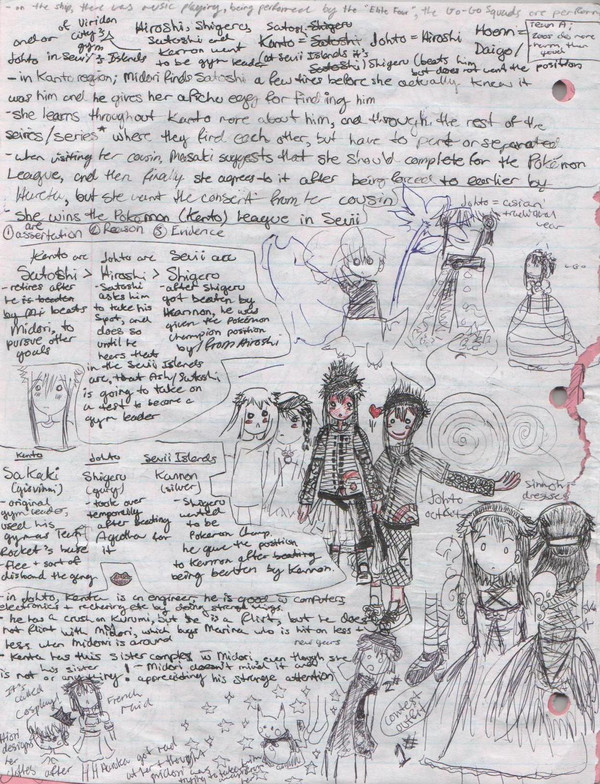 - on the ship, there was music playing, being performed by the "Elite Four", the Go-Go Squads are
of Viridan city's gym
and or
Johto in Sevii's Islands
Hiroshi, Shigeru, Satoshi and Kannon went to be gym leader
Satoshi Shigeru
Kanto = Satoshi Johto = Hiroshi
at Sevii Islands it's
Satoshi) Shigeru (beats him but does not want the position
Hoenn = Daigo/
Team A:
does more harm than good
- in Kanto region; Midori finds Satoshi a few times before she actually knew it
was him and he gives her a Pichu egg for finding him
- she learns throughout Kanto more about him, and through the rest of the
seires/series* where they find each other, but have to part or separated
- when visiting her cousin, Masaki suggests that she should complete for the Pokémon
League, and then finally she agrees to it after being forced to earlier by
but she want the consent from her cousin
- she wins the Pokémon (Kento) League in Sevii
① are assertation ② Reason ③ Evidence
Johto = asian traditional wear
Kanto arc
Satoshi >
- retires after
he is beaten
by
Midori, to
pursue other
goals
Johto arc
Hiroshi >
- Satoshi
asks him
to take his
spot, and
does so
until he
hears that
in the Sevii Islands
arc, that Ash/Satoshi
is going to take on
a test to become a
gym leader
Sevii arc
Shigero
- after Shigeru
got beaten by
Kannon, he was
given the Pokémon
Champion position
by/from Hiroshi
Kanto
Sakaki
(giovanni)
- original
gym leader,
used his
gym as Team
Rocket's base
- flee + sort of
disband the gang
Johto
Shigeru
(gary)
- took over
temporally
after beating
Agatha for
it
Sevii Islands
Kannon
(silver)
- Shigeru
wanted
to be
Pokemon Champ,
he give the position
to Kannon after beating
being beaten by Kannon.
Johto outfit
dresses
- in Johto, Kenta is an engineer, he is good w/ computers
electronics + rechering etc by doing strange things.
- he has a crush on Kurumi, but she is a flirt, but he does
not flirt with Midori, which bugs Marina who is hit on less +
less when Midori is around
- Kenta has this sister complex w/ Midori even though she
is not his sister! - Midori doesn't mind it
or anything! appreciating his strange attention
new years
It's called Cosplay!
French Maid
Hiori designs
clothes after
Haruka got mad
at her + thought
Midori was
trying to take him
contest outfit
1#
2#